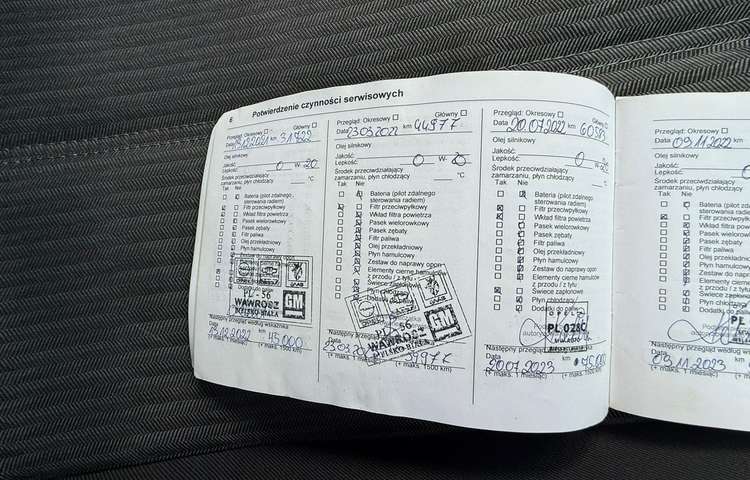 6
Potwierdzenie czynności serwisowych
Przegląd: Okresowy Główny
Data 2021 km 31722
Olej silnikowy
Jakość:
Lepkość: 0 W- 20
Środek przeciwdziałający
zamarzaniu, płyn chłodzący: °C
Tak Nie
Bateria (pilot zdalnego
sterowania radiem)
Filtr przeciwpyłkowy
Wkład filtra powietrza
Pasek wielorowkowy
Pasek zębaty
Filtr paliwa
Olej przekładniowy
Płyn hamulcowy
PL - 56
WAWROSZ
BIELSKO-BIAŁA
GM
Następny przegląd według wskaźnika
Data km
2022 45.000
(+ maks. 1 miesiąc) (+ maks. 1500 km)
Przegląd: Okresowy Główny
Data 23.03.2022 km 44977
Olej silnikowy
Jakość:
Lepkość: 0 W-
Środek przeciwdziałający
zamarzaniu, płyn chłodzący: °C
Tak Nie
Bateria (pilot zdalnego
sterowania radiem)
Filtr przeciwpyłkowy
Wkład filtra powietrza
Pasek wielorowkowy
Pasek zębaty
Filtr paliwa
Olej przekładniowy
Płyn hamulcowy
Zestaw do naprawy opon
Elementy cierne hamulców
z przodu / z tyłu
Świece zapłonowe
PL - 56
WAWROSZ
BIELSKO-BIAŁA
GM
Następny przegląd
Data
(+ maks. 1 (+ maks. 1500 km)
Przegląd: Okresowy Główny
Data 20.07.2022 km
Olej silnikowy
Jakość:
Lepkość: 0 W-
Środek przeciwdziałający
zamarzaniu, płyn chłodzący: °C
Tak Nie
Bateria (pilot zdalnego
sterowania radiem)
Filtr przeciwpyłkowy
Wkład filtra powietrza
Pasek wielorowkowy
Pasek zębaty
Filtr paliwa
Olej przekładniowy
Płyn hamulcowy
Zestaw do naprawy opon
Elementy cierne hamulców
z przodu / z tyłu
Świece zapłonowe
Płyn chłodzący
OPEL
PL 028C
Następny przegląd według wskaźnika
Data km
20.07.2023 75.000
(+ maks. 1 miesiąc) (+ maks. 1500 km)
Przegląd: Okresowy
Data 09.11.2022
Olej silnikowy
Jakość:
Lepkość:
Środek przeciwdziałający
zamarzaniu, płyn chłodzący:
Tak Nie
Bateria (pilot zdalnego
sterowania radiem)
Filtr przeciwpyłkowy
Wkład filtra powietrza
Pasek wielorowkowy
Pasek zębaty
Filtr paliwa
Olej przekładniowy
Płyn hamulcowy
Zestaw do naprawy
Elementy cierne
z przodu / z tyłu
Świece zapłonowe
Płyn chłodzący
Dodatki do paliw
PL
Następny przegląd według
Data
09.11.2023
(+ maks. 1 miesiąc)